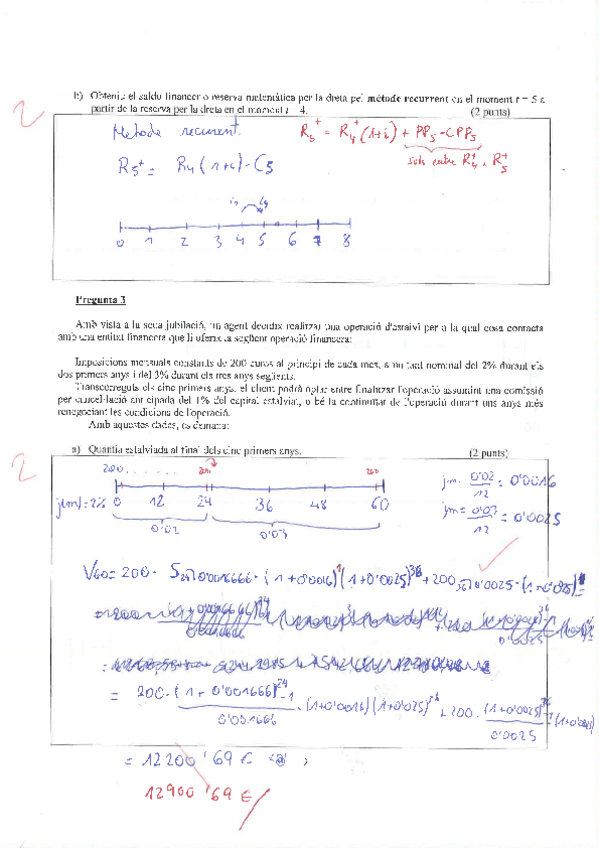 b) Obteniu el saldo financer o reserva matemàtica per la dreta pel mètode recurrent en el moment t = 5 a
partir de la reserva per la dreta en el moment t = 4. (2 punts)
2
Metode recurent.
R₅⁺ = R₄⁺(1+i) + PP₅ - CPP₅
sols entre R₄⁺ i R₅⁺
R₅⁺ = R₄(1+i) - C₅
0 1 2 3 4 5 6 7 8
Pregunta 3
Amb vista a la seua jubilació, un agent decidix realitzar una operació d'estalvi per a la qual cosa contacta
amb una entitat financera que li oferix la següent operació financera:
Imposicions mensuals constants de 200 euros al principi de cada mes, a un tant nominal del 2% durant els
dos primers anys i del 3% durant els tres anys següents.
Transcorreguts els cinc primers anys, el client podrà optar entre finalitzar l'operació assumint una comissió
per cancel·lació anticipada del 1% del capital estalviat, o bé la continuïtat de l'operació durant uns anys més
renegociant les condicions de l'operació.
Amb aquestes dades, es demana:
a) Quantia estalviada al final dels cinc primers anys. (2 punts)
2
200. . . . . . . 200 200
j(m)=2% 0 12 24 36 48 60
0'02 0'03
jm. 0'02/12 = 0'0016
jm = 0'03/12 = 0'0025
V60 = 200 · S24 0'001666 · (1+0'0016)(1+0'0025)³⁶ + 200 · S36 0'0025 · (1+0'0025)
= 200 · (1+0'001666)²⁴-1 / 0'001666 · (1+0'0016)(1+0'0025)³⁶ + 200 · (1+0'0025)³⁶-1 / 0'0025 (1+0'0025)
= 12200'69 €
12900'69 €